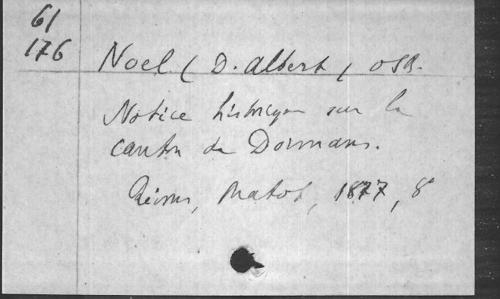 61
176
Noel ( D. Albert ) OSB.
Notice historique sur le
canton de Dormans.
Reims, Matot, 1877, 8°